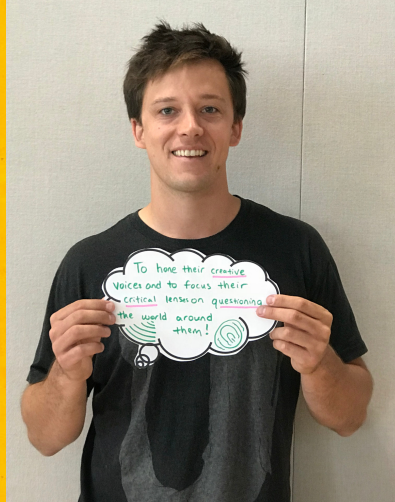 To hone their creative
voices and to focus their
critical lenses on questioning
the world around
them!